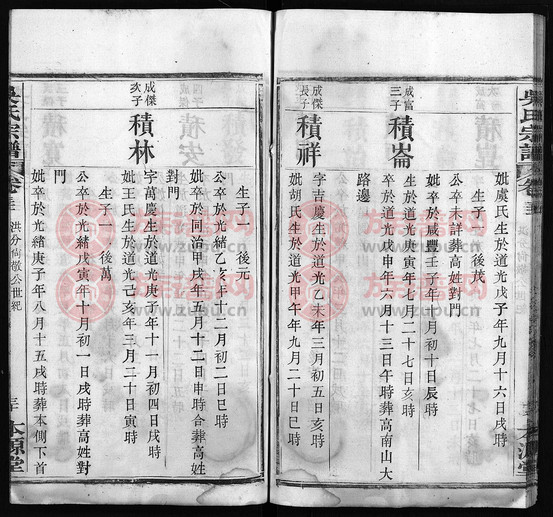 吳氏宗譜
妣虞氏生於道光戊子年九月十六日戌時
生子一 後茂
成富
三子
積崙
公卒未詳葬高姓對門
妣卒於咸豐壬子年十月初十日辰時
成傑
長子
積祥
字吉慶生於道光乙未年三月初五日亥時
妣胡氏生於道光甲午年九月二十日巳時
公卒於光緒乙亥年十二月初二日巳時
妣卒於同治甲戌年九月十二日申時合葬高姓
對門
生子一 後元
成傑
次子
積林
字萬慶生於道光庚子年十一月初四日戌時
妣王氏生於道光己亥年三月二十日寅時
生子一 後萬
公卒於光緒戊寅年十月初一日戌時葬高姓對
門
妣卒於光緒庚子年八月十五戌時葬本側下首
吳氏宗譜
洪分尚敬公世紀
本源堂
族譜網
www.zupu.cn